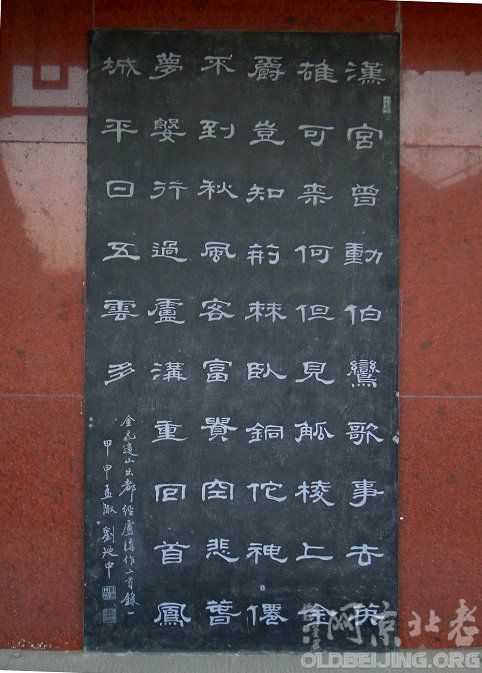 漢宮曾動伯鸞歌事去英
雄可来何但見觚棱上金
爵豈知荊棘卧銅佗神僊
不到秋風客富貴空悲春
夢婆行過盧溝重回首鳳
城平日五雲多
金元遺山出都經盧溝作二首錄一
甲申孟 劉延中
网京北老
OLDBEIJING.ORG